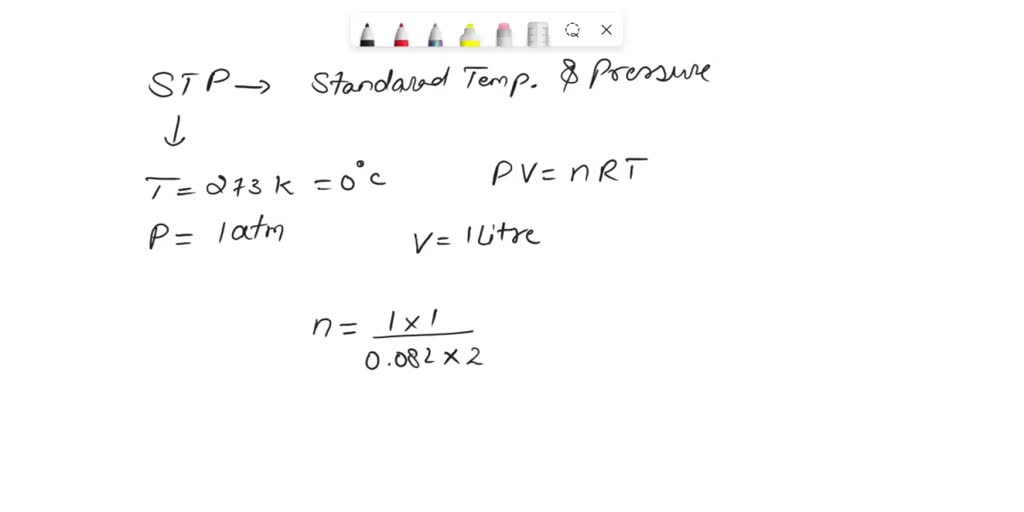 STP → Standared Temp. & Pressure
↓
T = 273 K = 0°C
PV = nRT
P = 1 atm
V = 1 Litre
n = 1 × 1 / 0.082 × 2